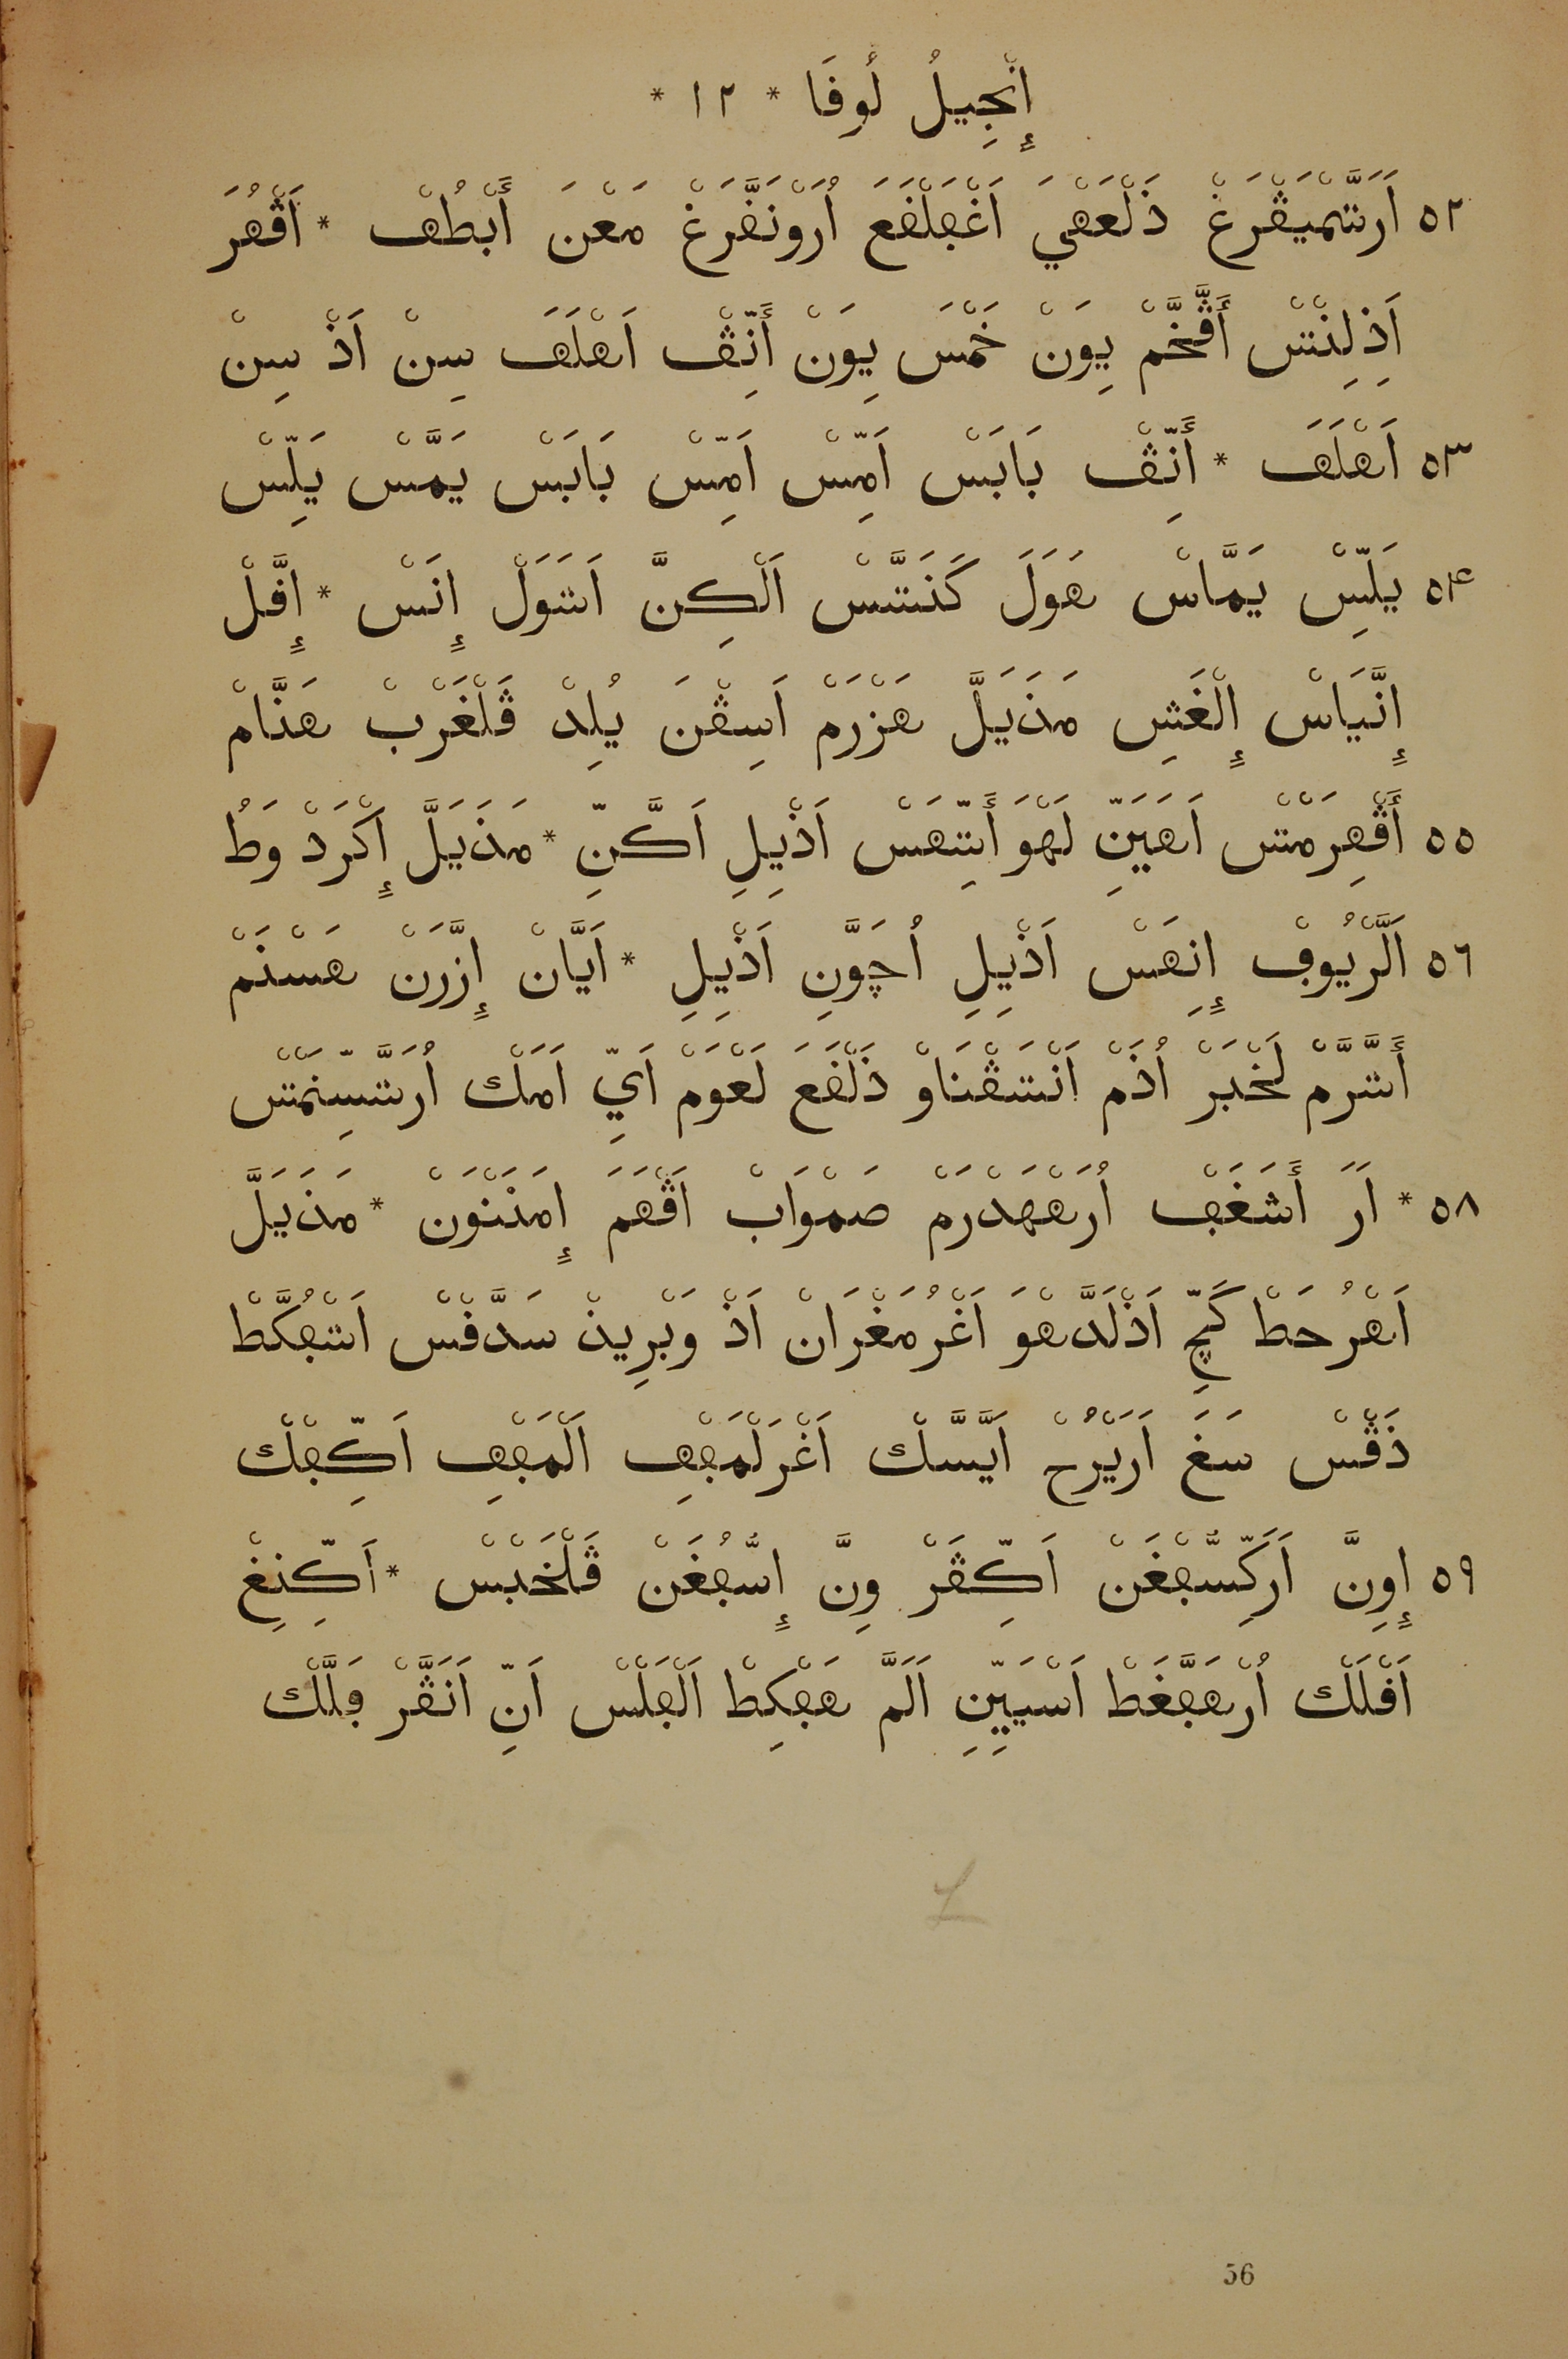 إِنْجِيلُ لُوفَا * ١٢ *
٥٢ اَرَتَّمْيَڢْرَغْ ذَلْعَهْيَ اَغْڢَلْفَعَ اُرَوْنَفَّرَغْ مَعْنَ أَبْطُفْ * اَڨْهُرَ
اَذِلِنْتْسْ أَڨَّخَّمْ يِوَنْ خَمْسَ يِوَنْ أَنِّڨْ اَهْلَفَ سِنْ اَذْ سِنْ
٥٣ اَهْلَفَ * أَنِّڨْ بَابَسْ اَمِّسْ اَمِّسْ بَابَسْ يَمَّسْ يَلِّسْ
٥٤ يَلِّسْ يَمَّاسْ هَوَلَ كَنَتَّسْ اَلْكِنَّ اَثَوَلْ إِنَسْ * إِڢَّلْ
إِنَّيَاسْ إِلْغَشِ مَذَيَلَّ هَزْرَمْ اَسِڨْنَ يُلِدْ ڨَلْغَرْبْ هَنَّامْ
٥٥ أَڨْهِرَمْتْسْ اَهَيَنِّ لَهْوَ أَتِّهَسْ اَذْيِلِ اَكَّنِّ * مَذَيَلَّ إِكْرَدْ وَطُ
٥٦ اَلرَّيُوڢْ إِنِهَسْ اَذْيِلِ اُچَوَّنِ اَذْيِلِ * اَيَّانْ إِزَّرَنْ هَسْنَمْ
أَتَّرَّمْ لَخْبَرْ اُذَمْ اَنْتَڨْنَاوْ ذَلْفَعَ لَعْوَمْ اَيِّ اَمَكْ اُرَتَّسِّنَمْتْسْ
٥٨ * اَرَ أَشَغَڢْ اُرَهْهَدْرَمْ صَمْوَابْ اَڨْهَمَ إِمَنَنْوَنْ * مَذَيَلَّ
اَهْرُحَطْ كَچِّ اَذْلَدَّهْوَ اَغْرُمَغْرَانْ اَذْ وَبْرِيذْ سَدَّفْسْ اَتْڢُكَّطْ
ذَڨْسْ سَغَ اَرَيْرُحْ اَيَّسَّكْ اَغْرَلْمَڢْهِڢْ اَلْمَڢْهِڢْ اَكِّڢْكْ
٥٩ إِوِنَّ اَرَكِّسُّڢْغَنْ اَكِّڨَرْ وِنَّ إِسُّڢُغَنْ ڨَلْخَبْسْ * اَكِّنِغْ
اَفْلَكْ اُرْهَڢَّغَطْ اَسْيَيِّنِ اَلَمَّ هَڢْكِطْ اَلْڢَلْسْ اَنِّ اَنَڨَّرْ ڢَلَّكْ
56